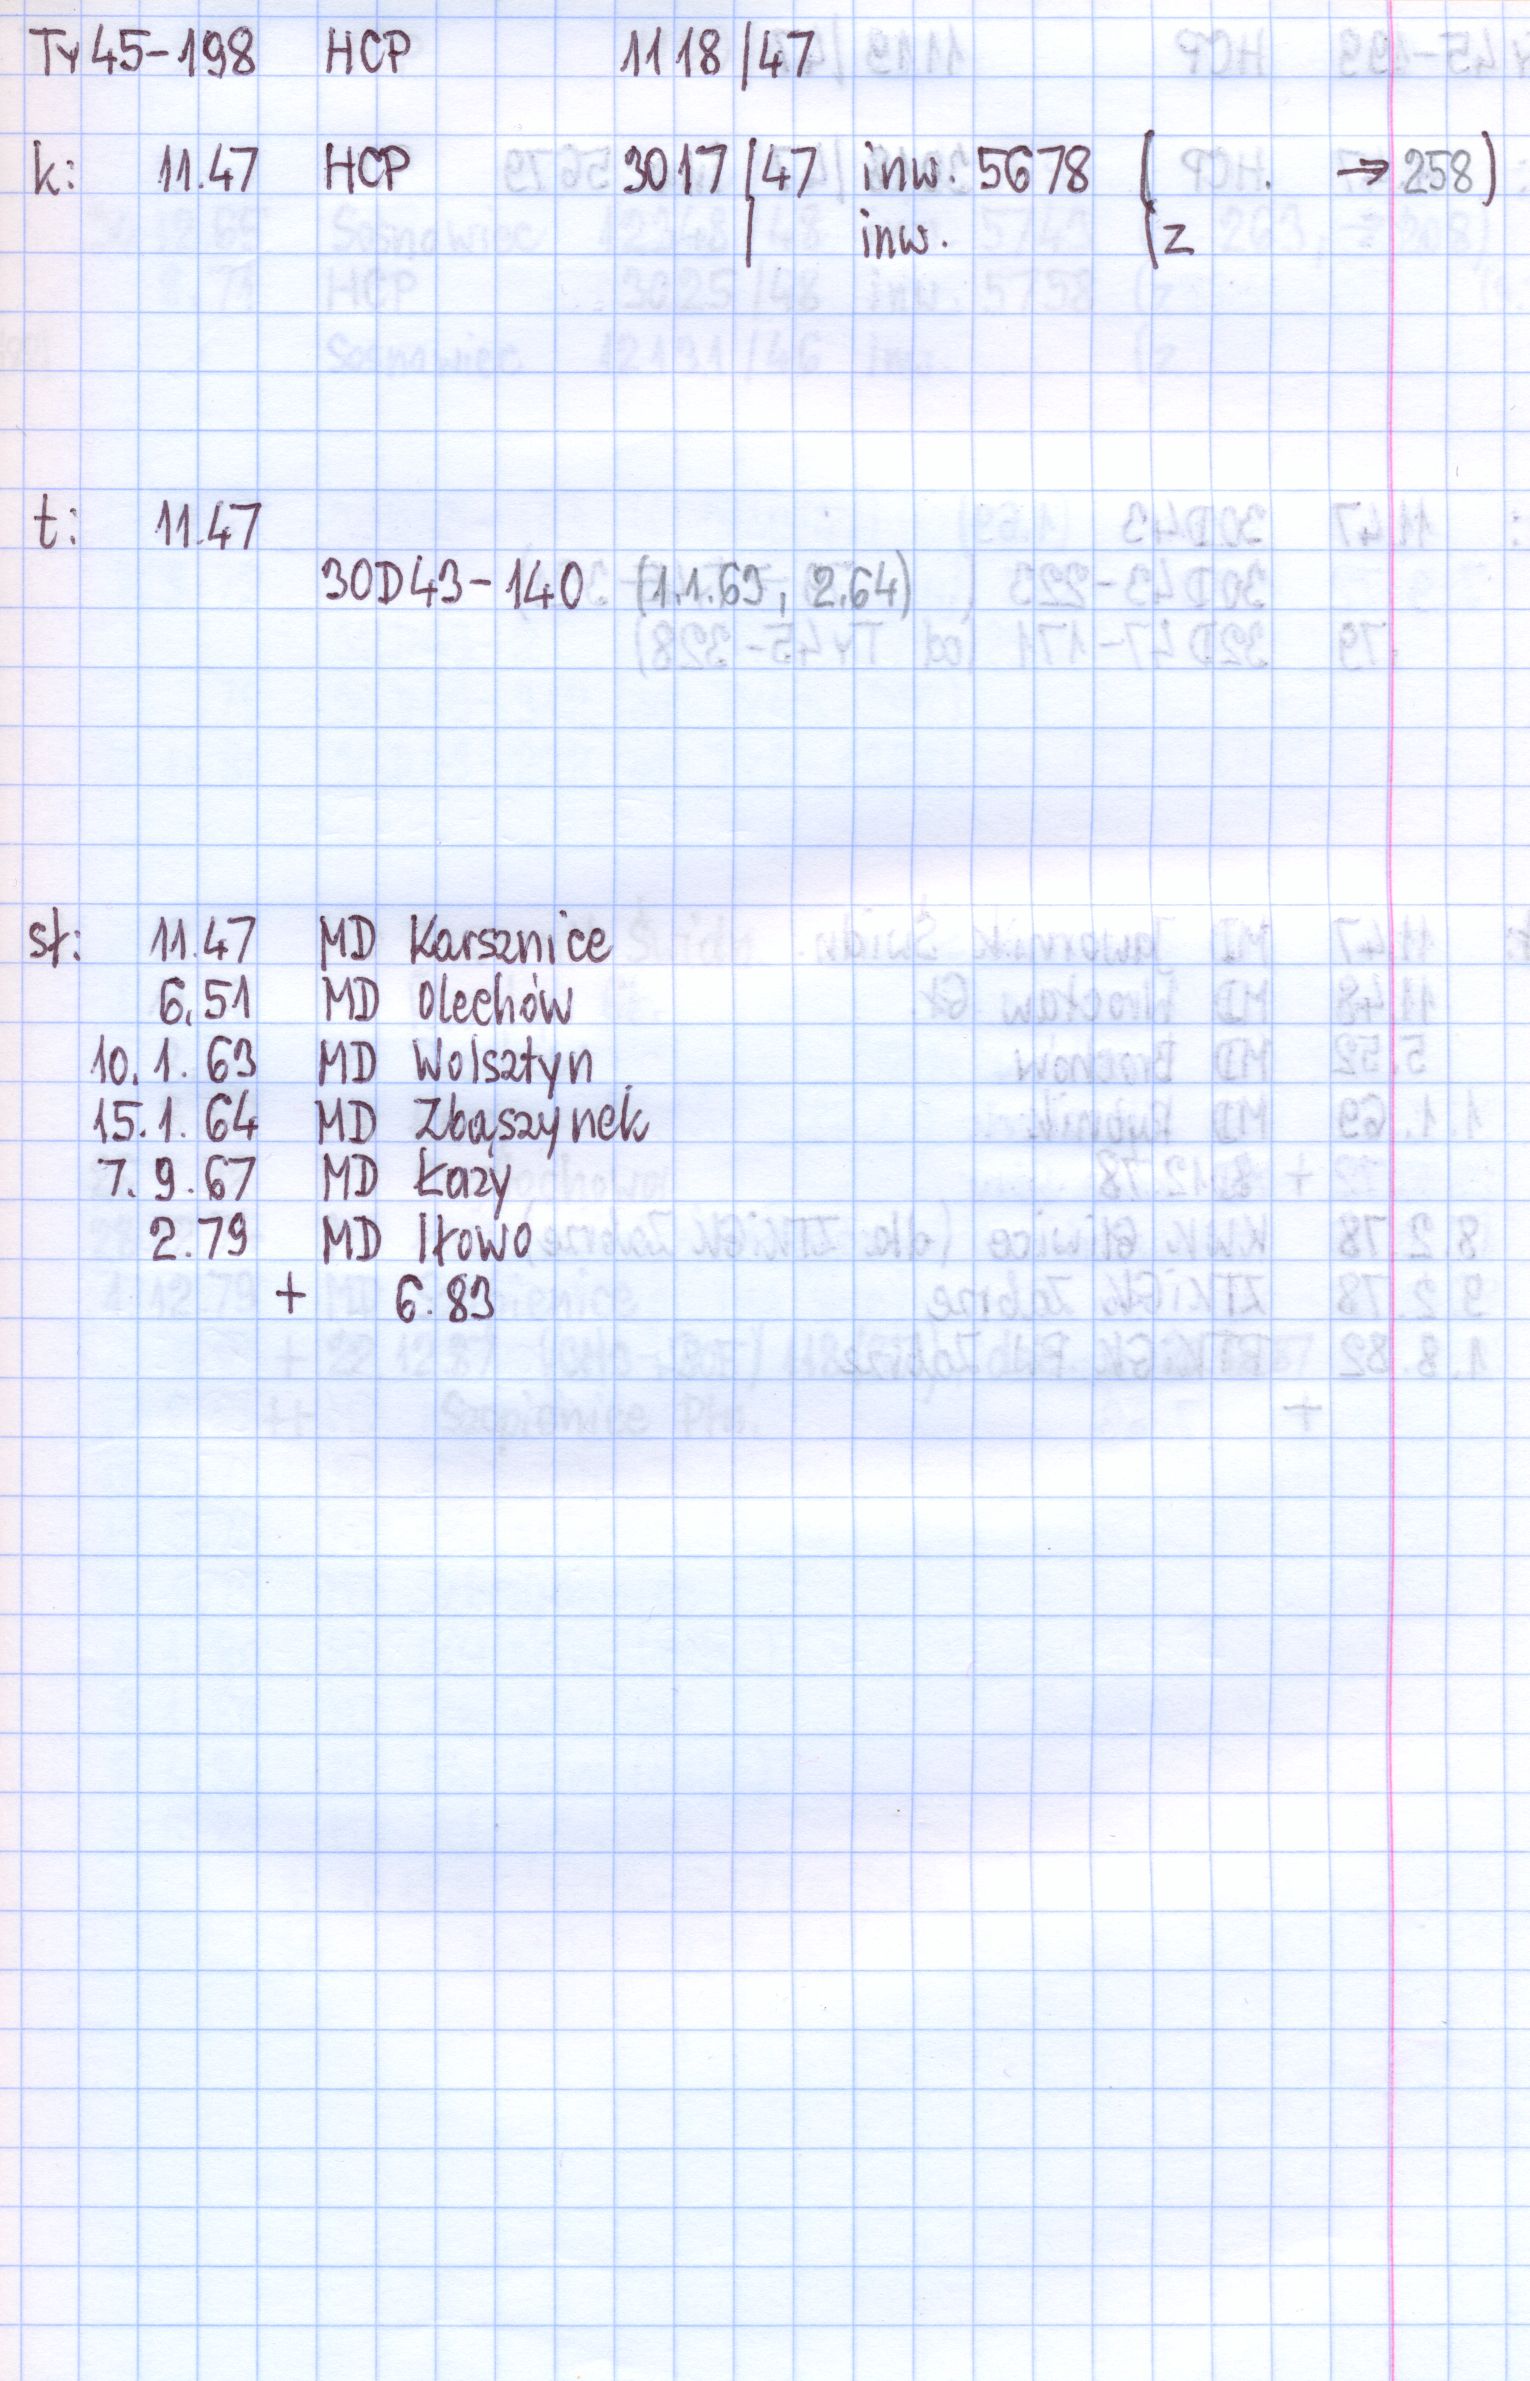 Ty45-198 HCP 1118/47
k: 11.47 HCP 3017/47 inw. 5678 ( . → 258)
/ inw. (z
t: 11.47
30D43-140 (1.1.63, 2.64)
st: 11.47 MD Karsznice
6.51 MD Olechów
10.1.63 MD Wolsztyn
15.1.64 MD Zbąszynek
7.9.67 MD Łazy
2.79 MD Iłowo
+ 6.83